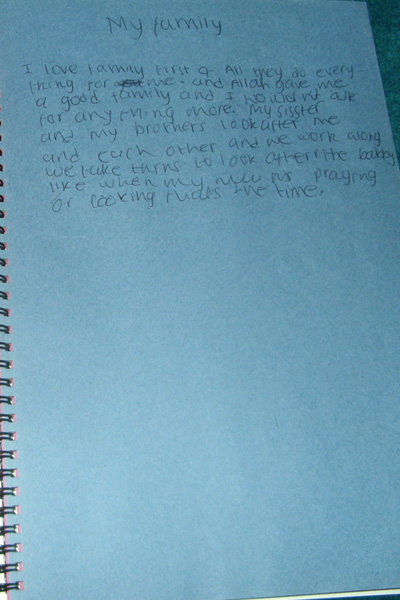 My family
I love family first of All they do every
thing for me. and Allah gave me
a good family and I would not ask
for any thing more. My sisster
and my brothers look after me
and each other and we work along
we take turns to look after the babby
like when my mum is praying
or cooking the time.